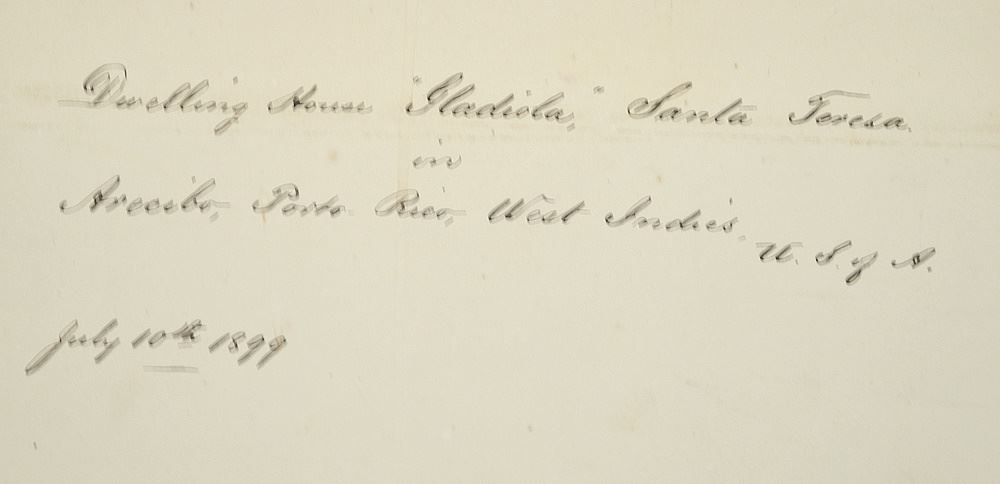 Dwelling House "Gladiola," Santa Teresa.
in
Arecibo, Porto Rico, West Indies.
U. S. of A.
July 10th 1899